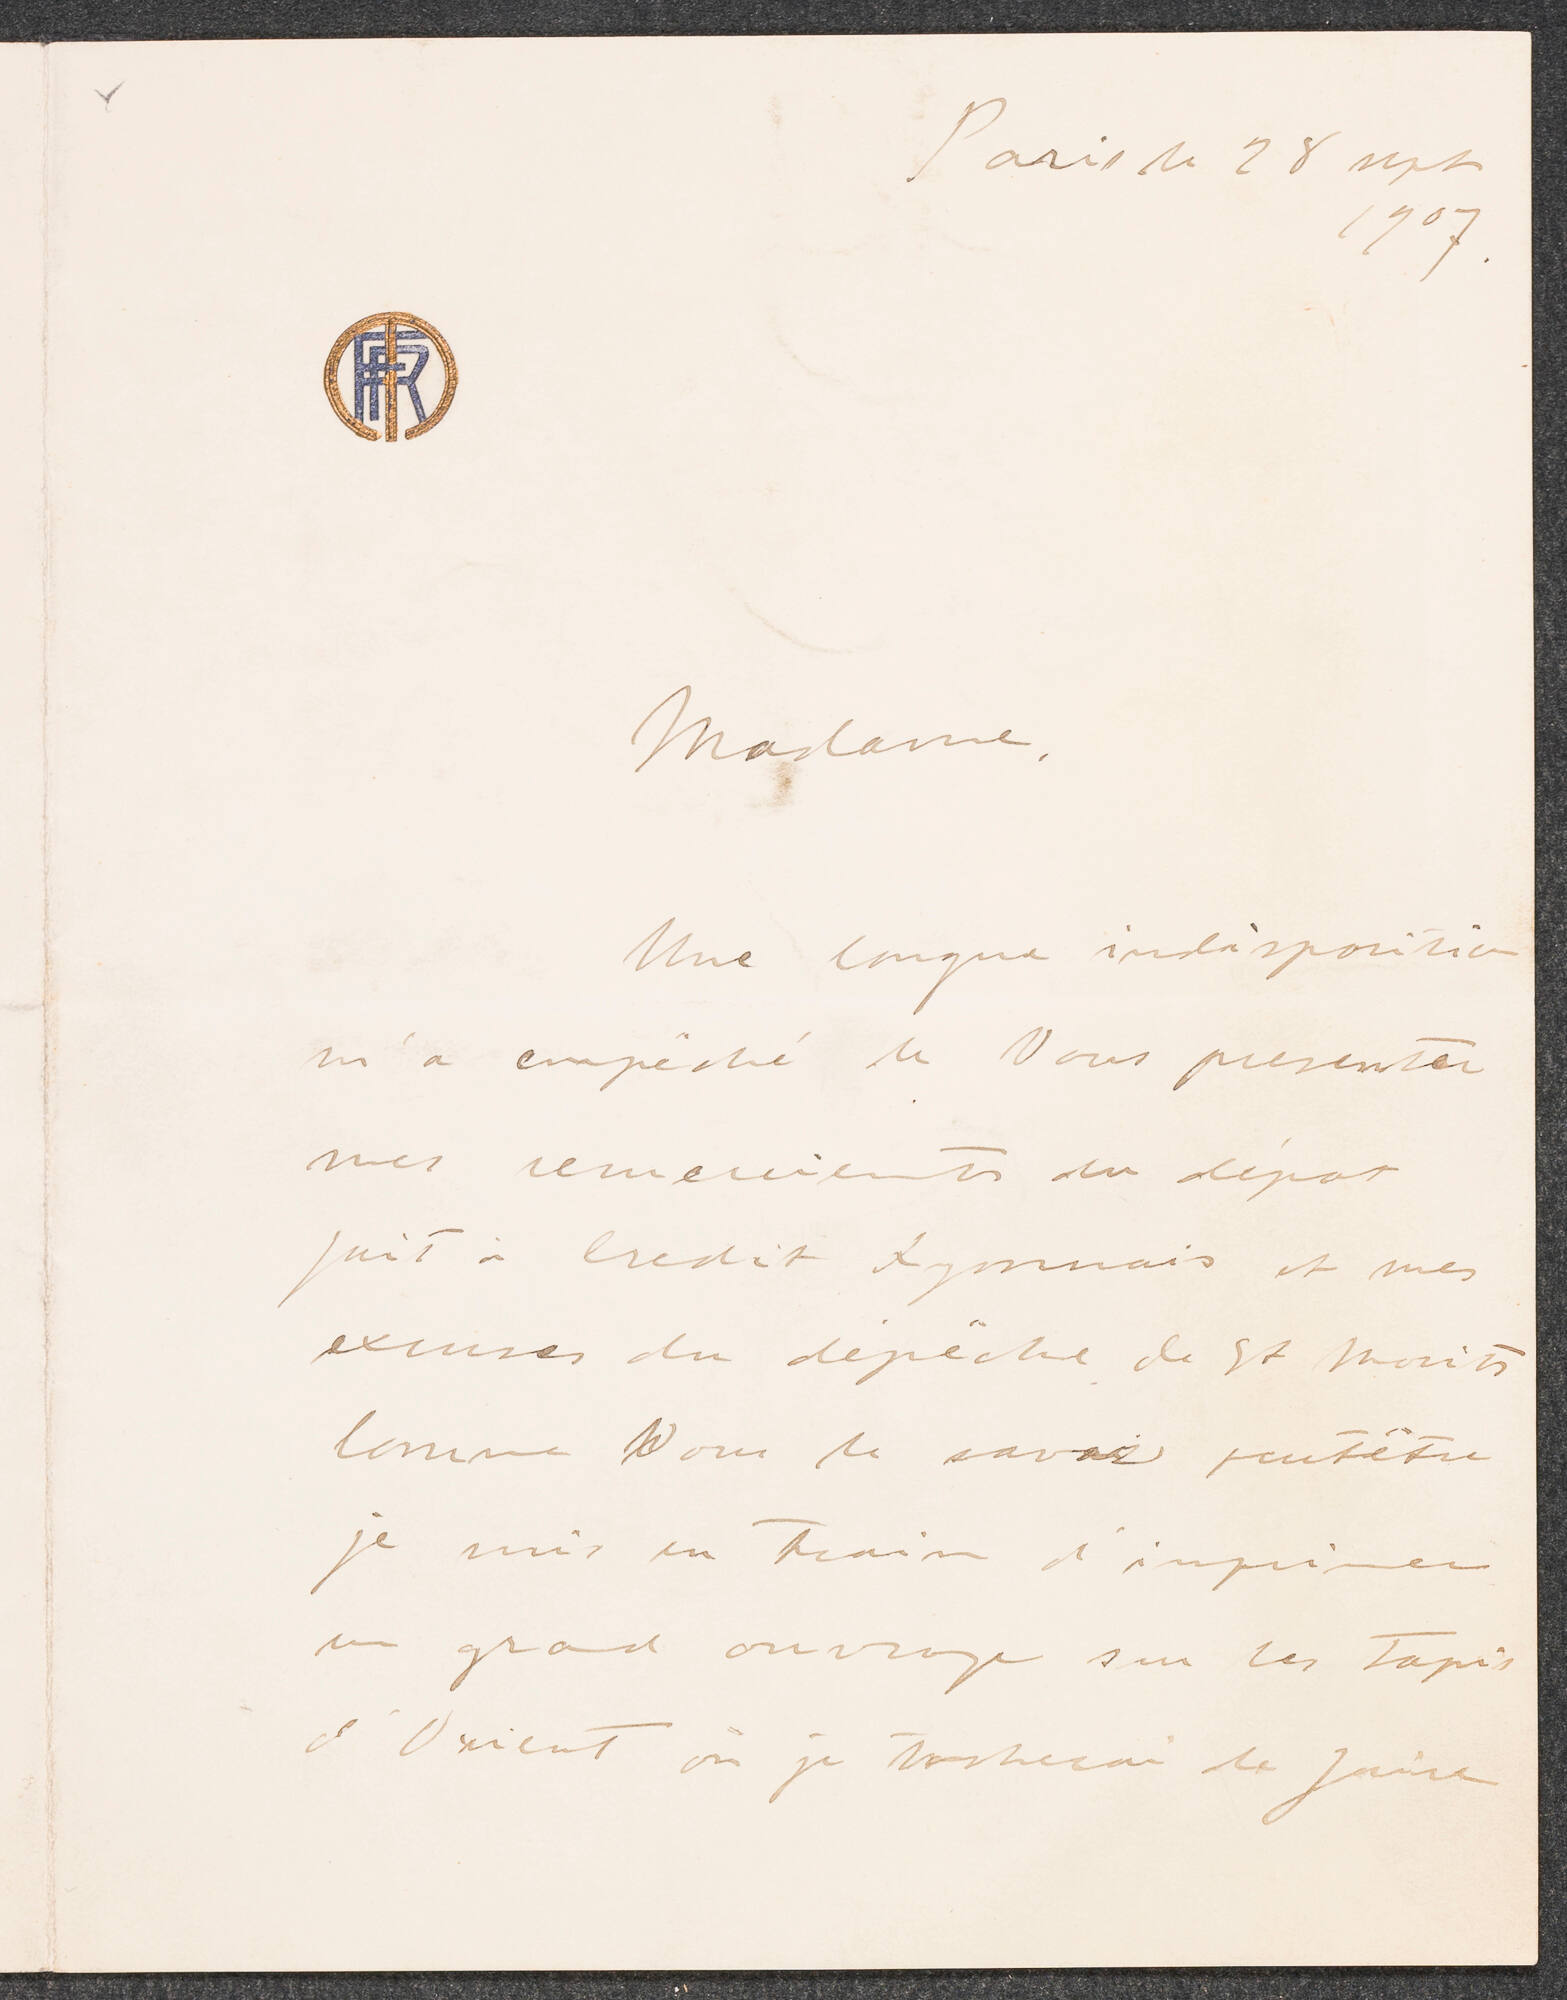 Paris le 28 sept
1907.
FR
Madame,
Une longue indisposition
m'a empêché de Vous presenter
mes remerciements du dépot
fait à Credit Lyonnais et mes
excuses du dépêche de St Morits
Comme Vous le savez peutêtre
je suis en train d'imprimer
un grand ouvrage sur les Tapis
d'Orient où je tacherai de faire